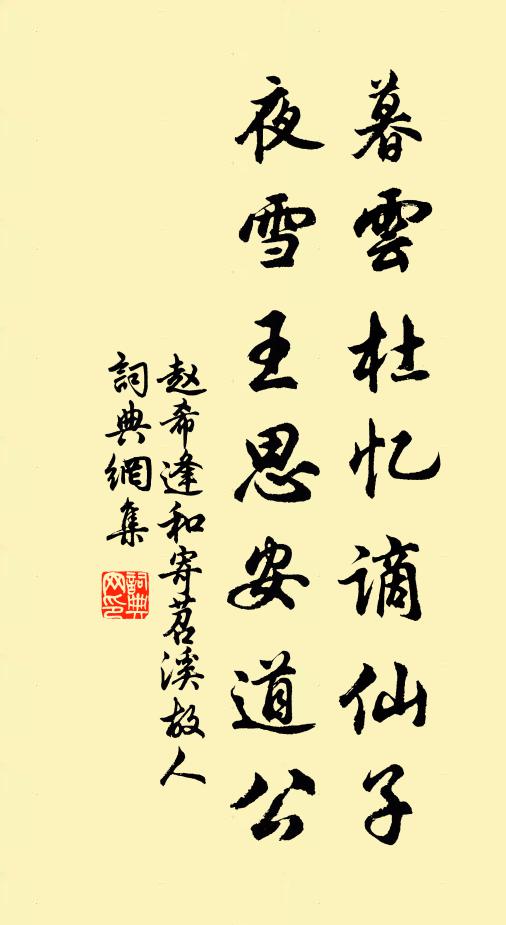 暮雲杜忆谪仙子
夜雪王思安道公
赵希逢和寄苕溪故人
詞典網集
詞典网印